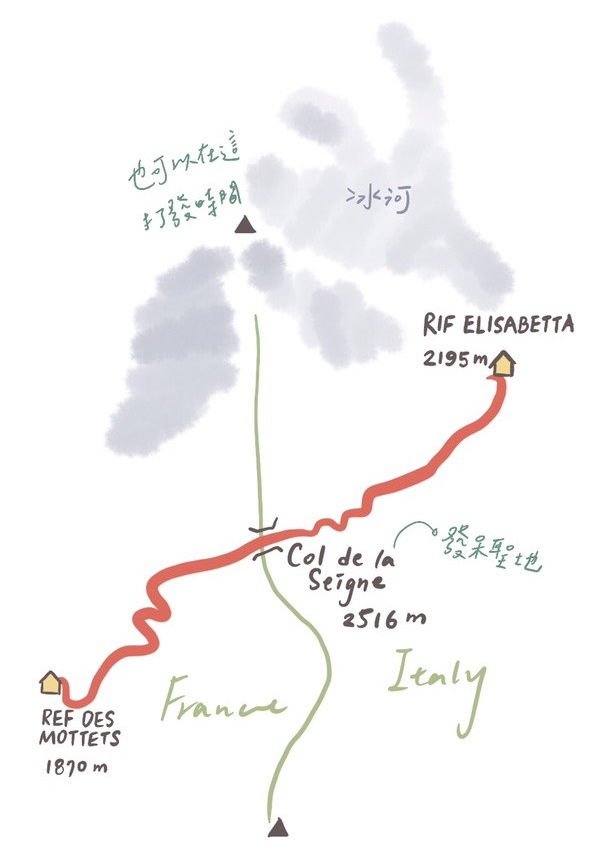 也可以在這
打發時間
冰河
RIF ELISABETTA
2195m
Col de la
Seigne
2516m
發呆聖地
Italy
France
REF DES
MOTTETS
1870m